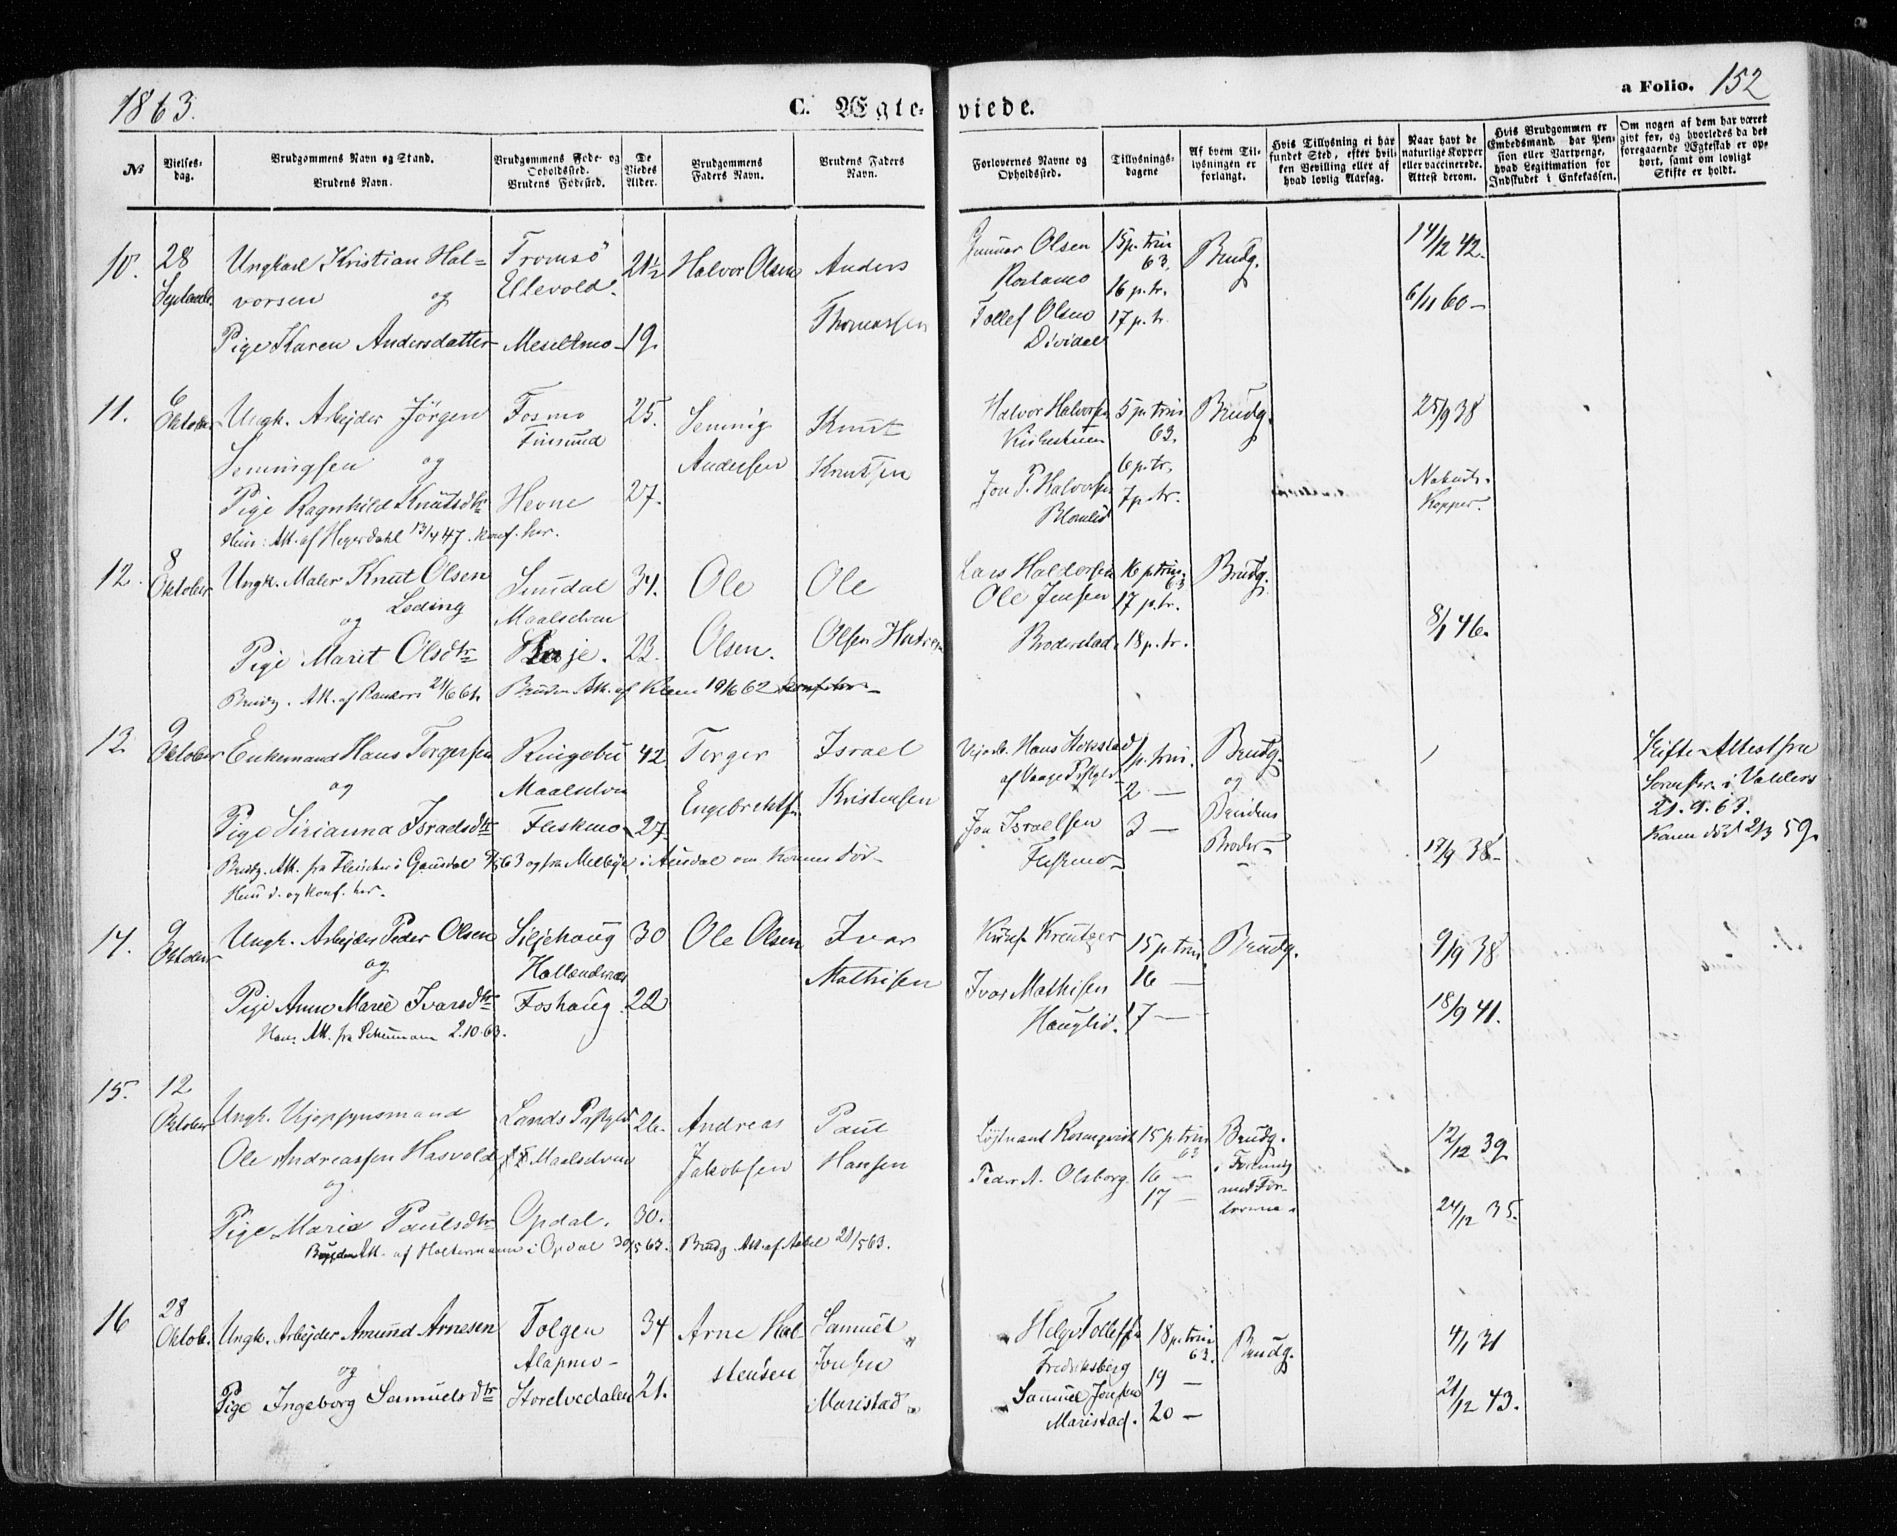 1863.
C. Ægteviede.
a Folio. 152
No
Vielsesdag.
Brudgommens Navn og Stand.
Brudens Navn.
Brudgommens Føde- og Opholdssted.
Brudens Fødested.
De Viedes Alder.
Brudgommens Faders Navn.
Brudens Faders Navn.
Forlovernes Navne og Opholdssted.
Tillysningsdagene
Af hvem Tillysningen er forlangt.
Hvis Tillysning ei har fundet Sted, efter hvilken Bevilling eller af hvad lovlig Aarsag.
Naar havt de naturlige Kopper eller vaccinerede. Attest derom.
Hvis Brudgommen er Embedsmand, har Pension eller Vartpenge, hvad Legitimation for Indskudet i Enkekassen.
Om nogen af dem har været gift før, og hvorledes da det foregaaende Ægteskab er ophørt, samt om lovligt Skifte er holdt.
10. 28 Septemb.
Ungkarl Kristian Halvorsen
og
Pige Karen Andersdatter
Tromsø
Ulevold.
Meseltmo
21½
19.
Halvor Olsen
Anders
Thomassen
Gunnar Olsen
Rostamo
Tollef Olsen
Dividal
15 p. trin 63.
16 p. tr.
17 p. tr.
Brudg.
14/12 42.
6/11 60
11. 6 Oktober
Ungk. Arbejder Jörgen
Semingsen og
Pige Ragnhild Knutsdtr
Huns Att. af Hegerdahl 13/4 47. Konf. her.
Fosmo
Finsund
Hevne
25.
27.
Seming
Andersen
Knut
Knutsen
Halvor Halvorsen
Jon T. Halvorsen
5 p. trin 63.
6 p. tr.
7 p. tr.
Brudg.
25/9 38
Naturl. Kopper.
12. 8 Oktober
Ungk. Maler Knut Olsen
Loding
og
Pige Marit Olsdtr
Brudg. Att. af 21/6 61. Bruden Att. af 19/6 62
Sundal
Maalselven
34.
23.
Ole
Olsen.
Ole
Olsen
Lars Haldorsen
Ole Jensen
Broderstad.
16 p. trin 63
17 p. tr.
18 p. tr.
Brudg.
8/1 46.
13. 9 Oktober
Enkemand Hans Torgersen
og
Pige Sirianna Israelsdtr
Brudg. Att. fra Fleischer i Gausdal 63 og fra Melbye i Aurdal om Konens Död
Hun d. og konf. her.
Ringebu
Maalselven
Fleskmo
42
27.
Torger
Engebrektsen
Israel
Kristensen
Hans Stokstad
af Vaage
Jon Israelsen
Fleskmo
1 p. trin.
2 —
3 —
Brudg.
og
Brudens
Broder
17/9 38
Skifte-Attest fra
Sorenskr. i Valders
21.9.63.
Konen död 2/3 59.
14. 9 Oktober
Ungk. Arbejder Peder Olsen
og
Pige Anne Marie Ivarsdtr
Hans Att. fra Schumann 2.10.63.
Siljehaug
Foshaug
30
22
Ole Olsen
Ivar
Mathisen
Kreutzer
Ivar Mathisen
Hauglid.
15 p. trin.
16 —
17 —
Brudg.
9/9 38
18/9 41.
15. 12 Oktober
Ungk. Opsynsmand
Ole Andreassen Hasvold
og
Pige Maria Paulsdtr
Bruden Att. af Holtermann i Opdal 30/5 63. Brudg. Att. af Aabel 21/5 63.
Lands Prstgld
Maalselven
Opdal.
26.
30.
Andreas
Jakobsen
Paul
Hansen
Löjtnant Rosenqvist
Peder A. Olsborg.
15 p. trin 63
16 —
17 —
Brudg.
12/12 39
24/12 35.
16 28 Oktob.
Ungk. Arbejder Amund Arnesen
og
Pige Ingeborg Samuelsdtr
Tolgen
Alapmo
Storelvedalen
34
21.
Arne Halstensen
Samuel
Jonsen
Maristad
Helge Tollefsen
Fredriksberg
Samuel Jonsen
Maristad.
18 p. trin 63.
19 —
20 —
Brudg.
4/1 31
21/12 43.